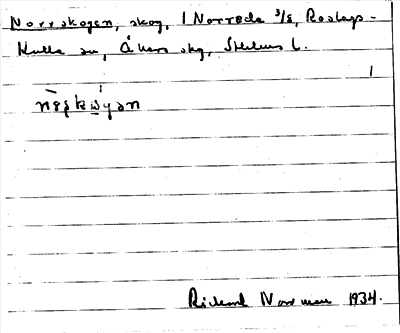 Norrskogen, skog, 1 Norreda 3/8, Roslags-
Kulla sn, Åkers skg, Sthlms l.
1
Rickard Norrman 1934.